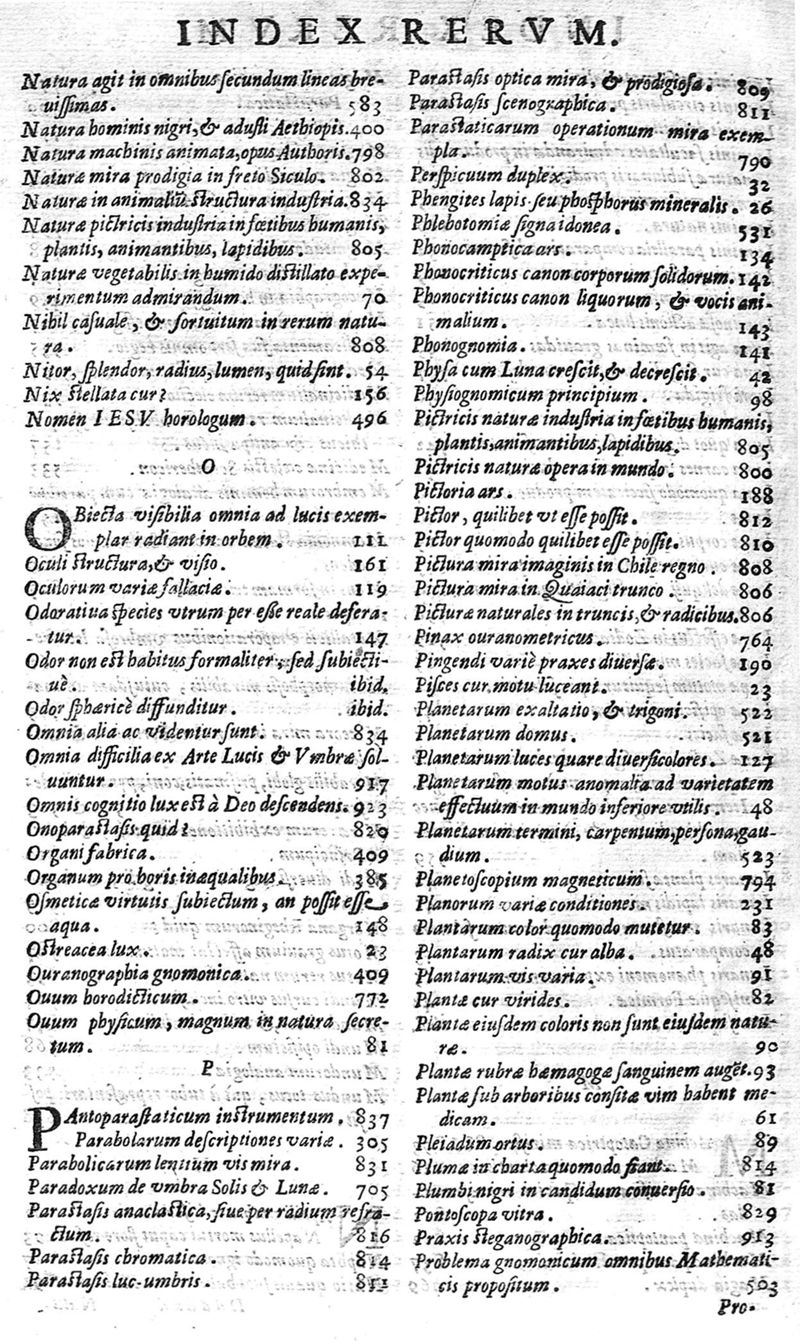 INDEX RERVM.
Natura agit in omnibus ſecundum lineas bre-
uiſſimas. 583
Natura hominis nigri, & aduſti Aethiopis. 400
Natura machinis animata, opus Authoris. 798
Naturæ mira prodigia in freto Siculo. 802
Naturæ in animaliũ ſtructura induſtria. 834
Naturæ pictricis induſtria in fœtibus humanis,
plantis, animantibus, lapidibus. 805
Naturæ vegetabilis in humido diſtillato expe-
rimentum admirandum. 70
Nihil caſuale, & fortuitum in rerum natu-
ra. 808
Nitor, ſplendor, radius, lumen, quid ſint. 54
Nix ſtellata cur? 156
Nomen IESV horologum. 496
O
OBiecta viſibilia omnia ad lucis exem-
plar radiant in orbem. 111
Oculi ſtructura, & viſio. 161
Oculorum variæ fallaciæ. 119
Odoratiua ſpecies vtrum per eſſe reale defera-
tur. 147
Odor non eſt habitus formaliter, ſed ſubiecti-
uè. ibid.
Odor ſphæricè diffunditur. ibid.
Omnia alia ac videntur ſunt. 834
Omnia difficilia ex Arte Lucis & Vmbræ ſol-
uuntur. 917
Omnis cognitio lux eſt à Deo deſcendens. 923
Onoparaſtaſis quid? 829
Organi fabrica. 409
Organum pro horis inæqualibus. 385
Oſmeticæ virtutis ſubiectum, an poſſit eſſe
aqua. 148
Oſtreacea lux. 23
Ouranographia gnomonica. 409
Ouum horodicticum. 772
Ouum phyſicum, magnum in natura ſecre-
tum. 81
P
PAntoparaſtaticum inſtrumentum. 837
Parabolarum deſcriptiones variæ. 305
Parabolicarum lentium vis mira. 831
Paradoxum de vmbra Solis & Lunæ. 705
Paraſtaſis anaclaſtica, ſiue per radium refra-
ctum. 816
Paraſtaſis chromatica. 814
Paraſtaſis luc-umbris. 811
Paraſtaſis optica mira, & prodigioſa. 809
Paraſtaſis ſcenographica. 811
Paraſtaticarum operationum mira exem-
pla. 790
Perſpicuum duplex. 32
Phengites lapis ſeu phoſphorus mineralis. 26
Phlebotomiæ ſigna idonea. 531
Phonocamptica ars. 134
Phonocriticus canon corporum ſolidorum. 142
Phonocriticus canon liquorum, & vocis ani-
malium. 143
Phonognomia. 141
Phyſa cum Luna creſcit, & decreſcit. 42
Phyſiognomicum principium. 98
Pictricis naturæ induſtria in fœtibus humanis,
plantis, animantibus, lapidibus. 805
Pictricis naturæ opera in mundo. 800
Pictoria ars. 188
Pictor, quilibet vt eſſe poſſit. 812
Pictor quomodo quilibet eſſe poſſit. 810
Pictura mira imaginis in Chile regno. 808
Pictura mira in Quaiaci trunco. 806
Picturæ naturales in truncis, & radicibus. 806
Pinax ouranometricus. 764
Pingendi variè praxes diuerſæ. 190
Piſces cur motu luceant. 23
Planetarum exaltatio, & trigoni. 522
Planetarum domus. 521
Planetarum luces quare diuerſicolores. 127
Planetarum motus anomalia ad varietatem
effectuum in mundo inferiore vtilis. 48
Planetarum termini, carpentum, perſona, gau-
dium. 523
Planetoſcopium magneticum. 794
Planorum variæ conditiones. 231
Plantarum color quomodo mutetur. 83
Plantarum radix cur alba. 48
Plantarum vis varia. 91
Plantæ cur virides. 82
Plantæ eiuſdem coloris non ſunt eiuſdem natu-
ræ. 90
Plantæ rubræ hæmagogæ ſanguinem augẽt. 93
Plantæ ſub arboribus conſitæ vim habent me-
dicam. 61
Pleiadum ortus. 89
Plumæ in charta quomodo fiant. 814
Plumbi nigri in candidum conuerſio. 81
Pontoſcopa vitra. 829
Praxis ſteganographica. 913
Problema gnomonicum omnibus Mathemati-
cis propoſitum. 503
Pro-